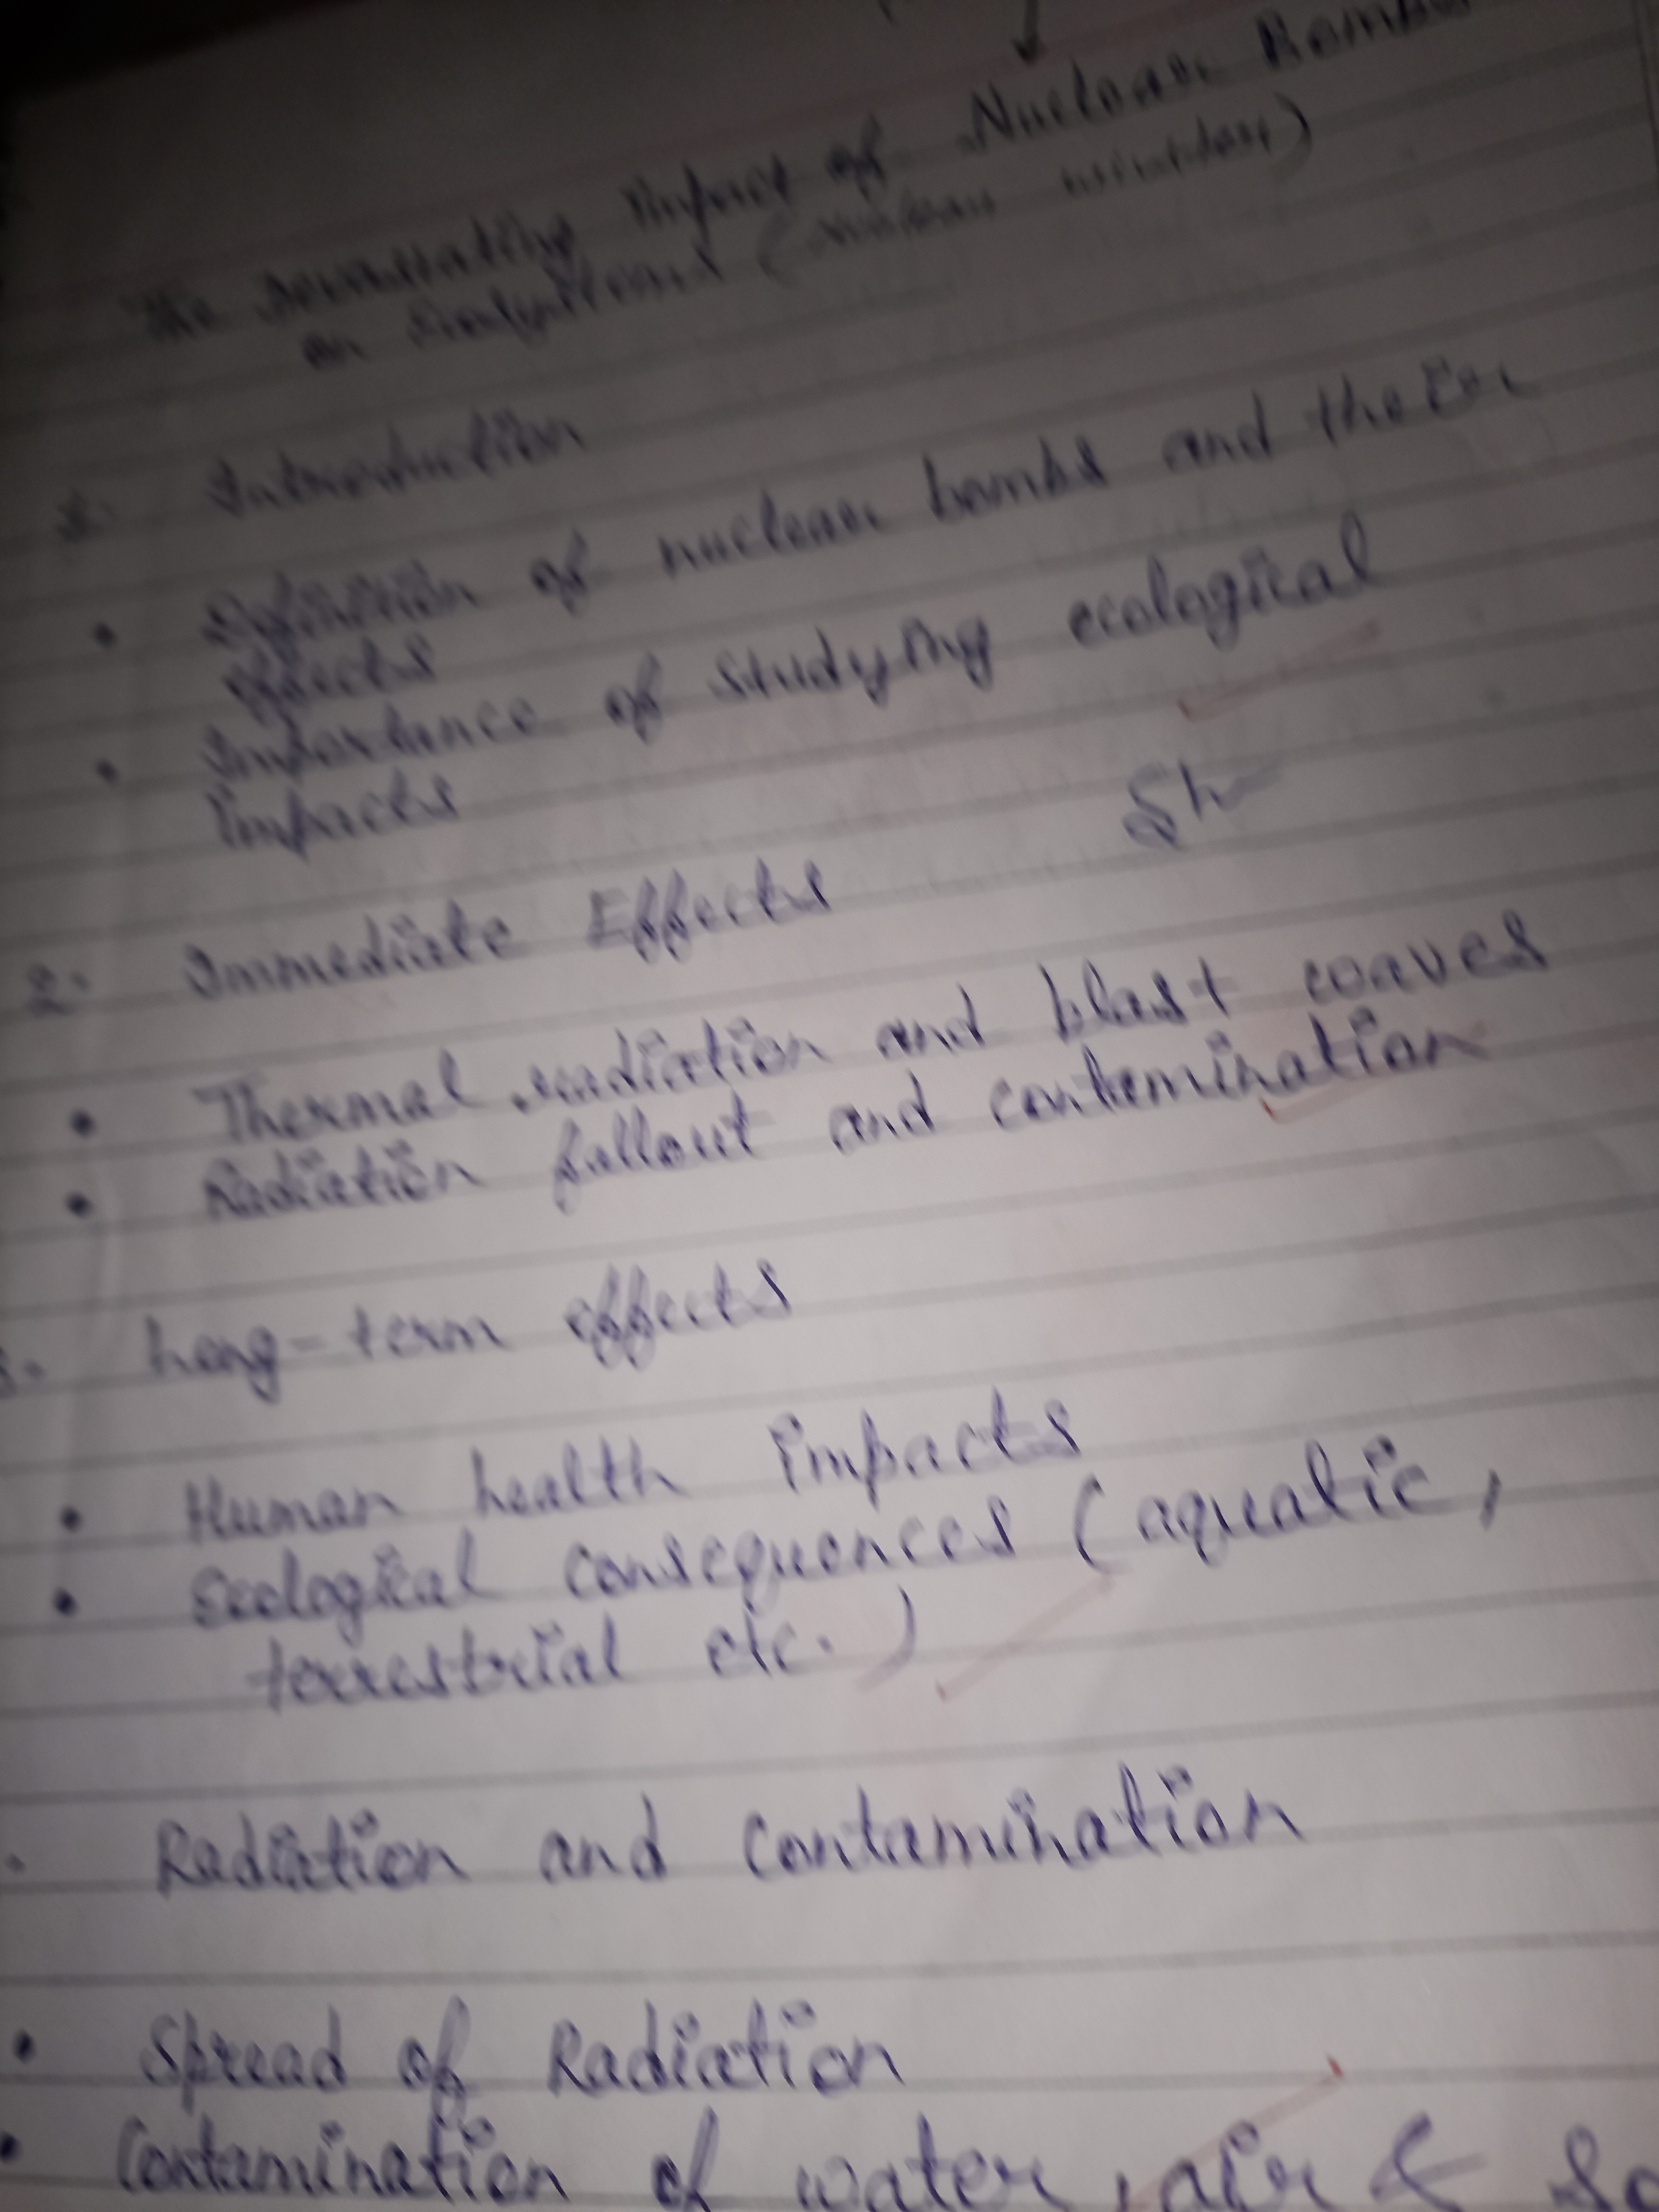 The Devastating Impact of Nuclear Bombs
on Ecosystems (nuclear winter)
1. Introduction
• Definition of nuclear bombs and their
effects
• Importance of studying ecological
impacts
2. Immediate Effects
• Thermal radiation and blast waves
• Radiation fallout and contamination
3. Long-term effects
• Human health impacts
• Ecological consequences (aquatic,
terrestrial etc.)
. Radiation and Contamination
• Spread of Radiation
• Contamination of water, air &